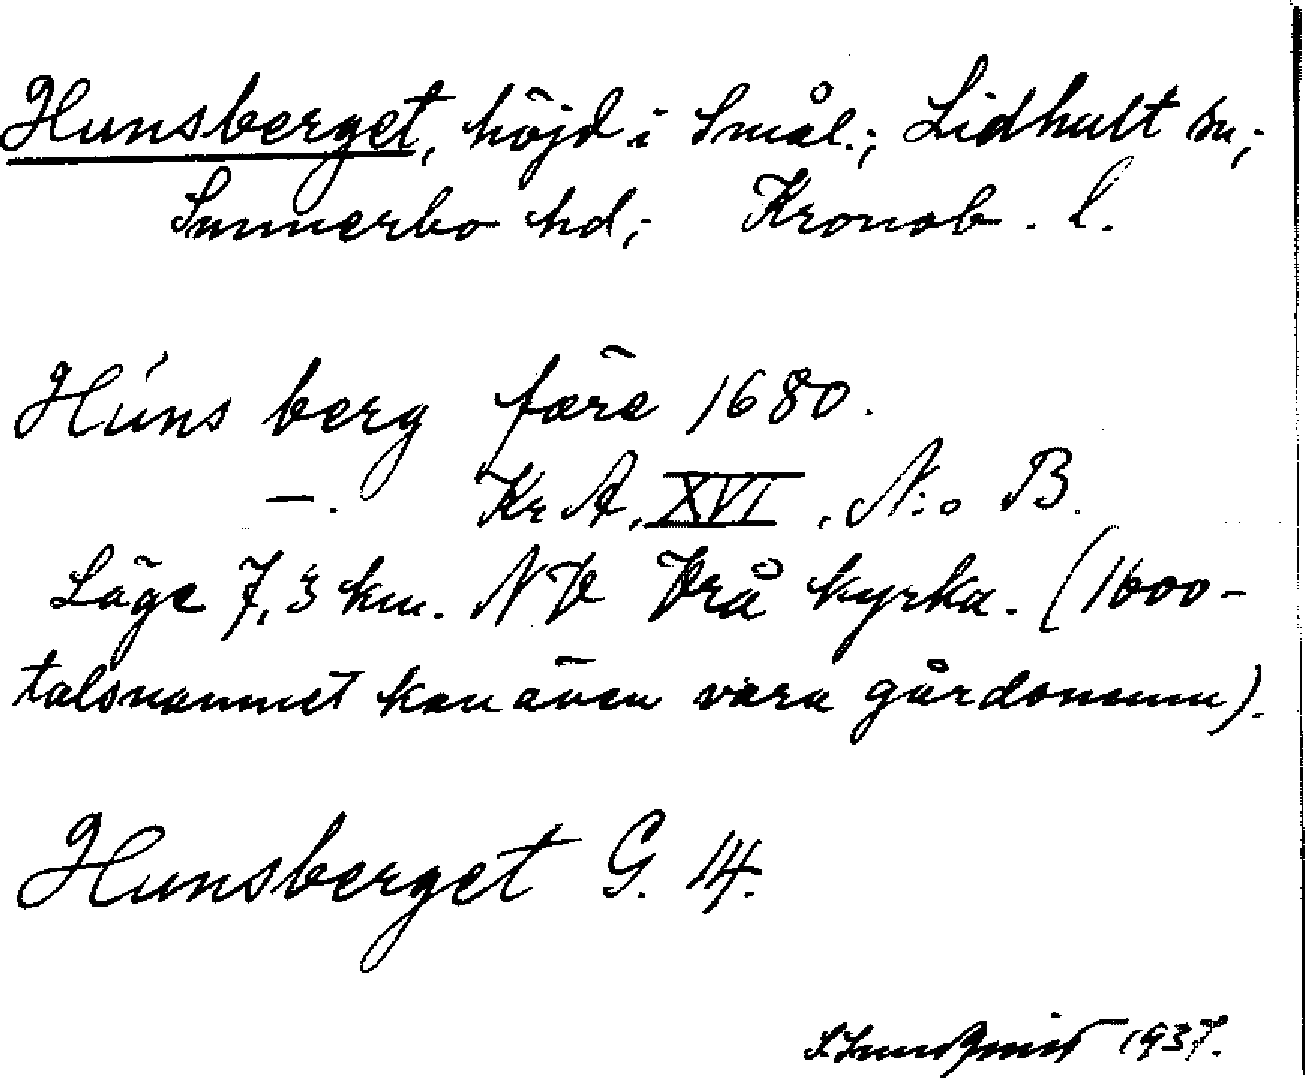 Hunsberget, höjd i Smål.; Lidhult sn;
Sunnerbo hd; Kronob. l.
Húns berg före 1680.
—. Kr A, XVI, N:o B.
Läge 7,3 km. NV Vrå kyrka. (1600-
talsnamnet kan även vara gårdsnamn).
Hunsberget G. 14.
1937.